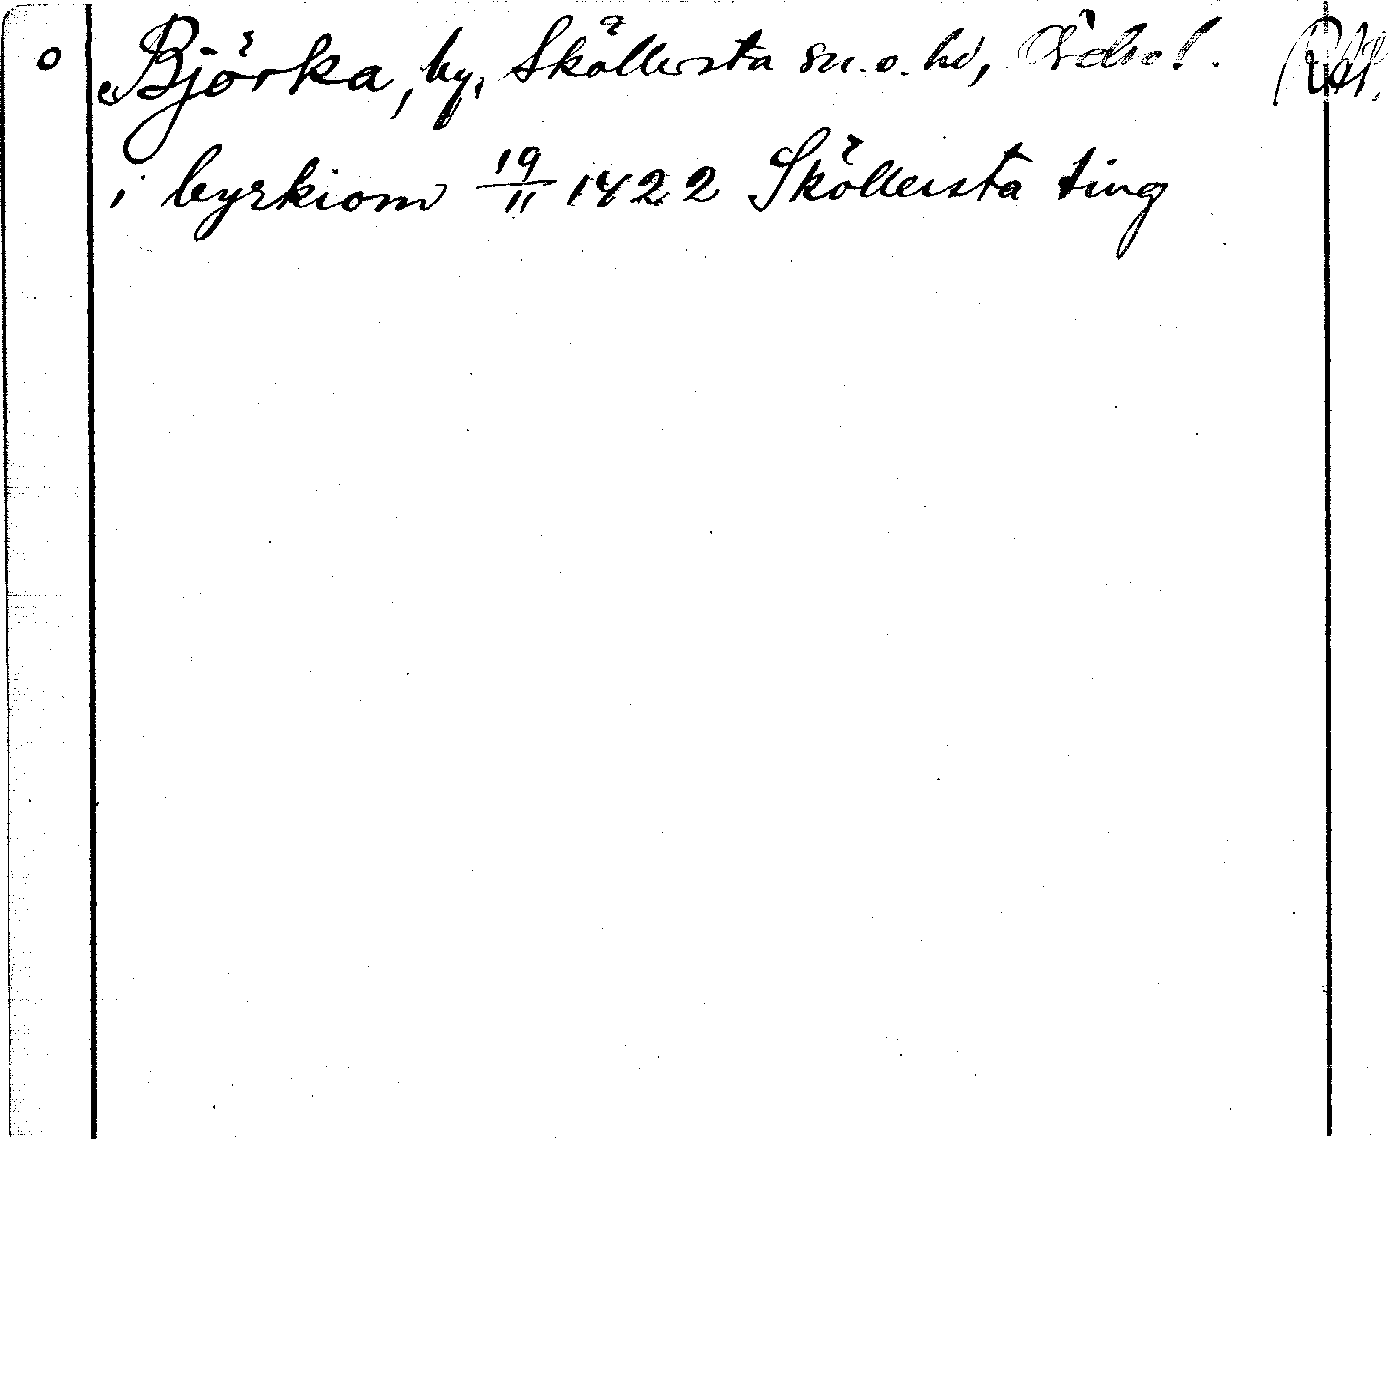 o Björka, by, Sköllersta sn. o. hd, Örebro l.
i byrkiom 19/11 1422 Sköllersta ting